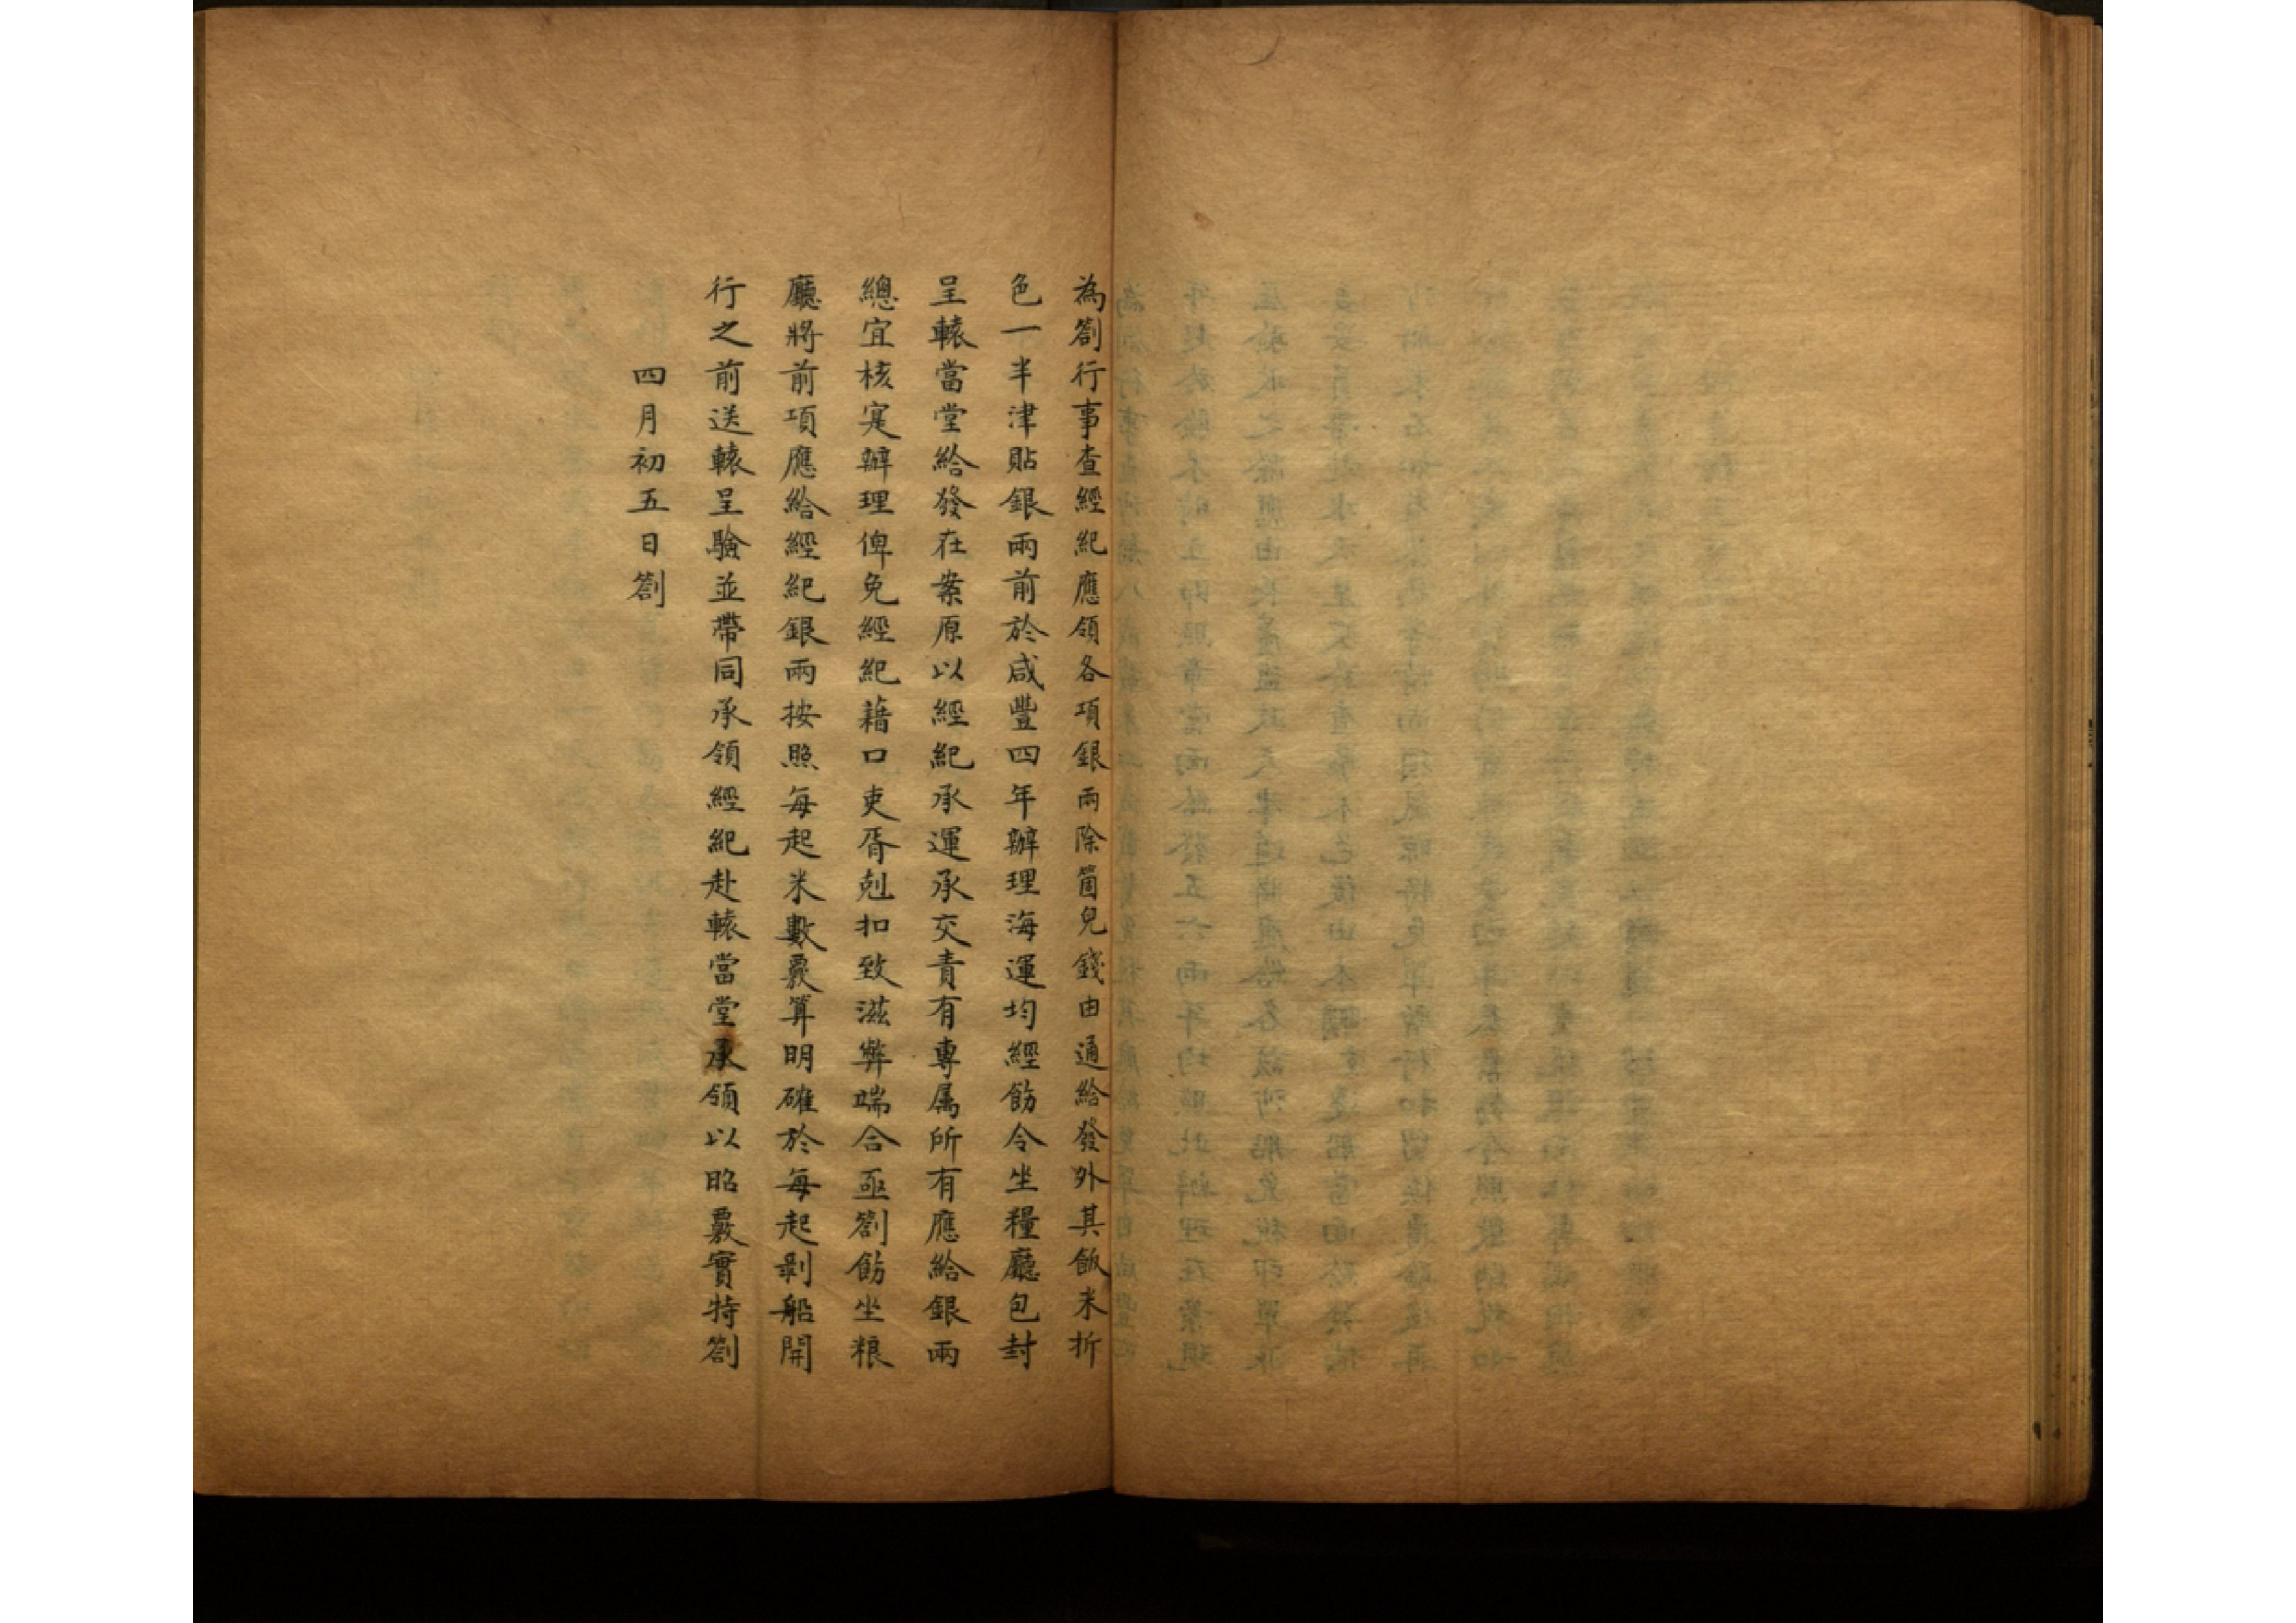 為劄行事查經紀應領各項銀兩除箇兒錢由通給發外其飯米折
色一半津貼銀兩前於咸豐四年辦理海運均經飭令坐糧廳包封
呈轅當堂給發在案原以經紀承運承交責有專属所有應給銀兩
總宜核寔辦理俾免經紀藉口吏胥尅扣致滋弊端合亟劄飭坐粮
廳將前項應給經紀銀兩按照每起米數覈算明確於每起剝船開
行之前送轅呈驗並帶同承領經紀赴轅當堂承領以昭覈實特劄
四月初五日劄